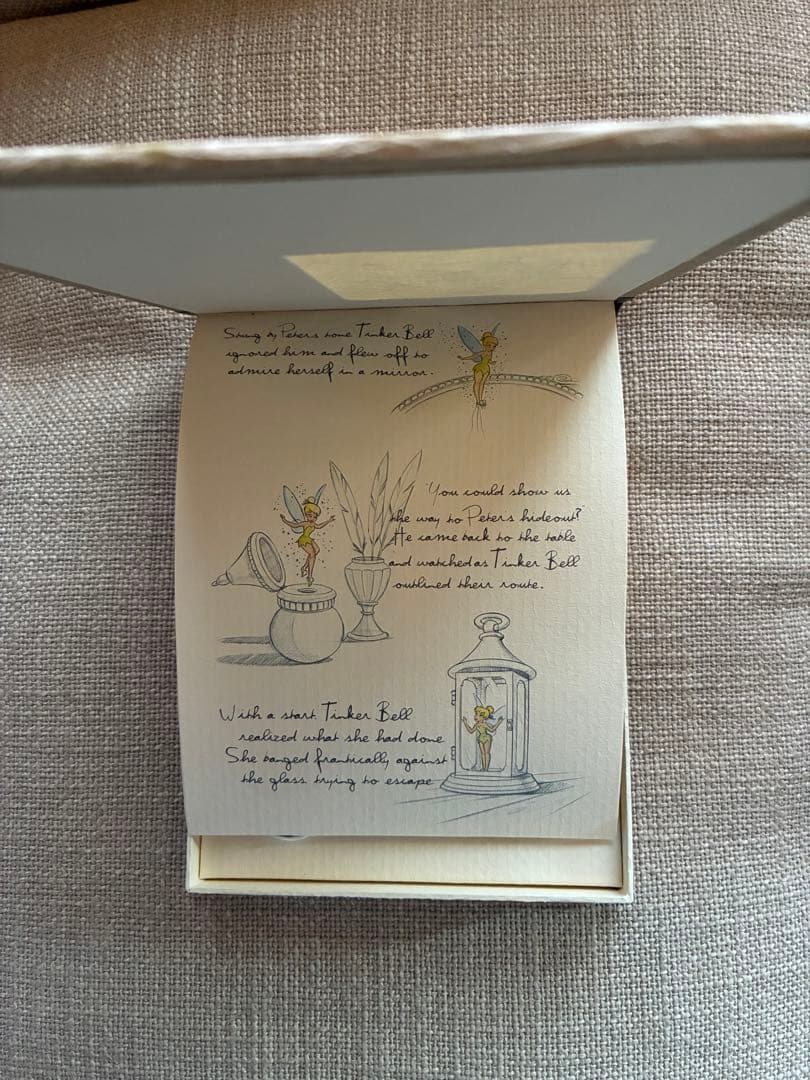 Stung by Peter's tone Tinker Bell
ignored him and flew off to
admire herself in a mirror.
"You could show us
the way to Peter's hideout?
He came back to the table
and watched as Tinker Bell
outlined their route.
With a start Tinker Bell
realized what she had done
She banged frantically against
the glass trying to escape